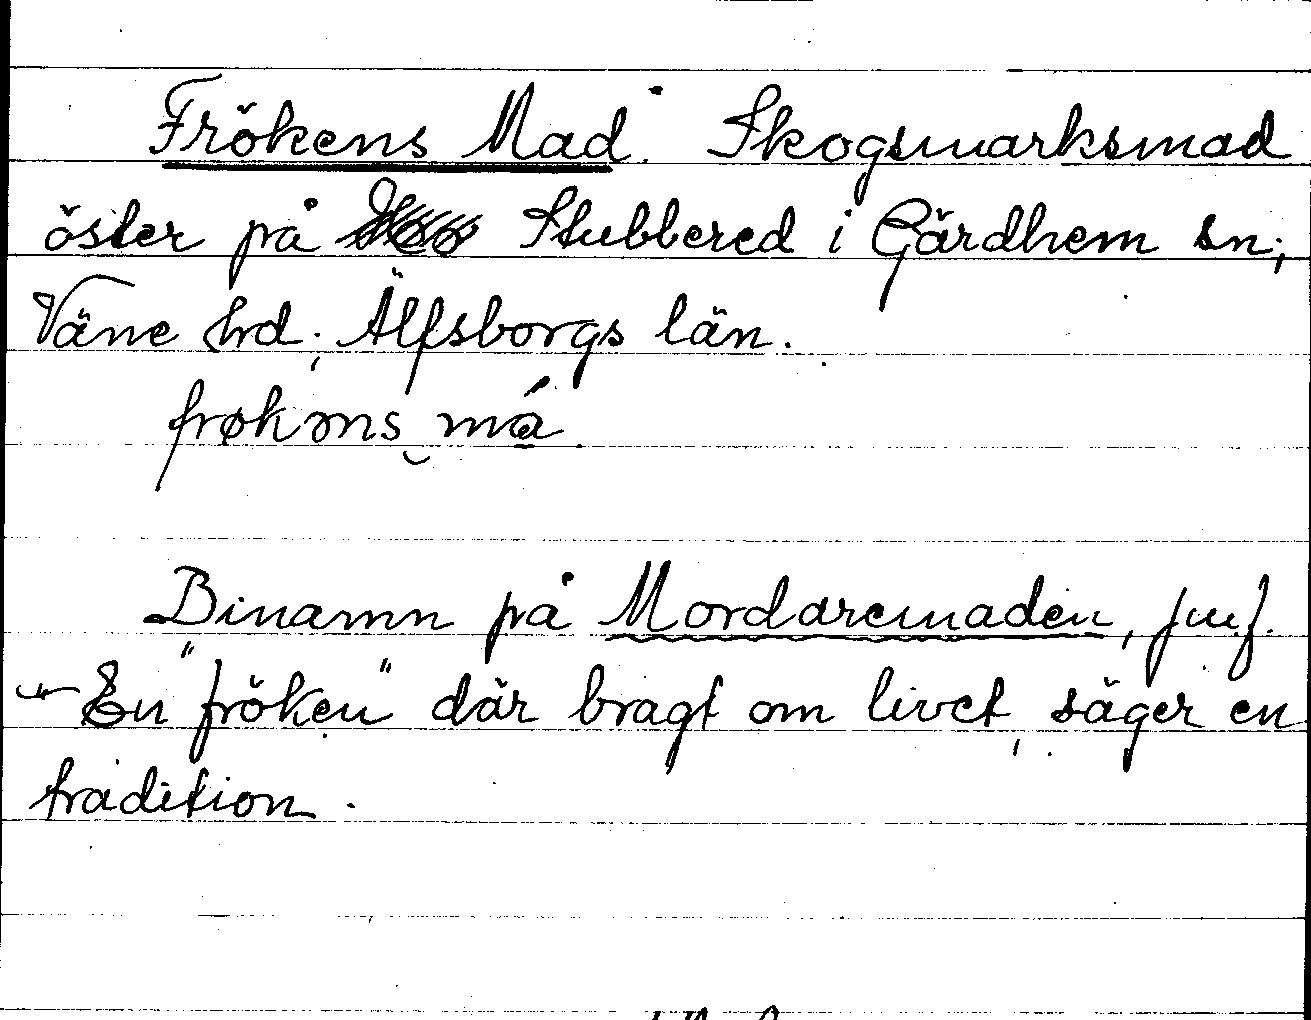 Frökens Mad. Skogsmarksmad
öster på Stubbered i Gärdhem sn;
Väne hrd; Älfsborgs län.
frøkəns má
Binamn på Mordaremaden, jmf.
– En "fröken" där bragt om livet, säger en
tradition.